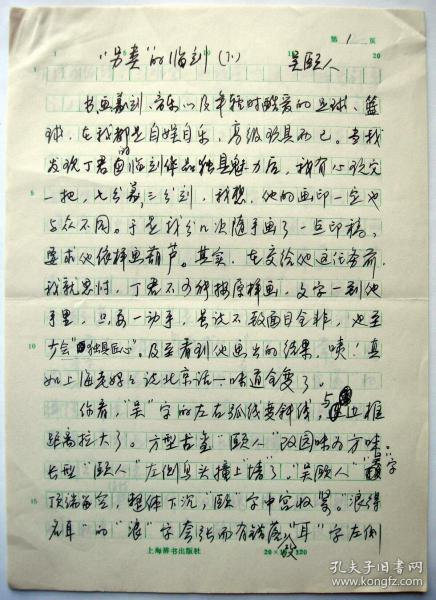 第 1 页
"另类"的临刻（下） 吴颐人
书画篆刻、音乐以及年轻时酷爱的足球、篮
球，在我都是自娱自乐，高级玩具而已。当我
发现丁君的临刻作品独具魅力后，就有心玩
一把，七分篆，三分刻，我想，他的画印一定也
与众不同。于是我分几次随手画了一点印稿，
要求他依样画葫芦。其实，在交给他这任务前，
我就思忖，丁君不可能按原样画，文字一到他
手里，只要一动手，虽说不致面目全非，也至
少会"独具匠心"。及至看到他画出的结果，咦！真
如上海老好说北京话一味道全变了。
你看，"吴"字的左右弧线变斜线，与边框
距离拉大了。方型古玺"颐人"改圆味为方味。
长型"颐人"左侧息头撞上"墙"了。"吴颐人"字
顶端留空，整体下沉，"颐"字中宫收紧。"浪得
名耳"的"浪"字夸张而有错落，"耳"字左侧
5
10
15
20
上海辞书出版社
20×320
孔夫子旧书网